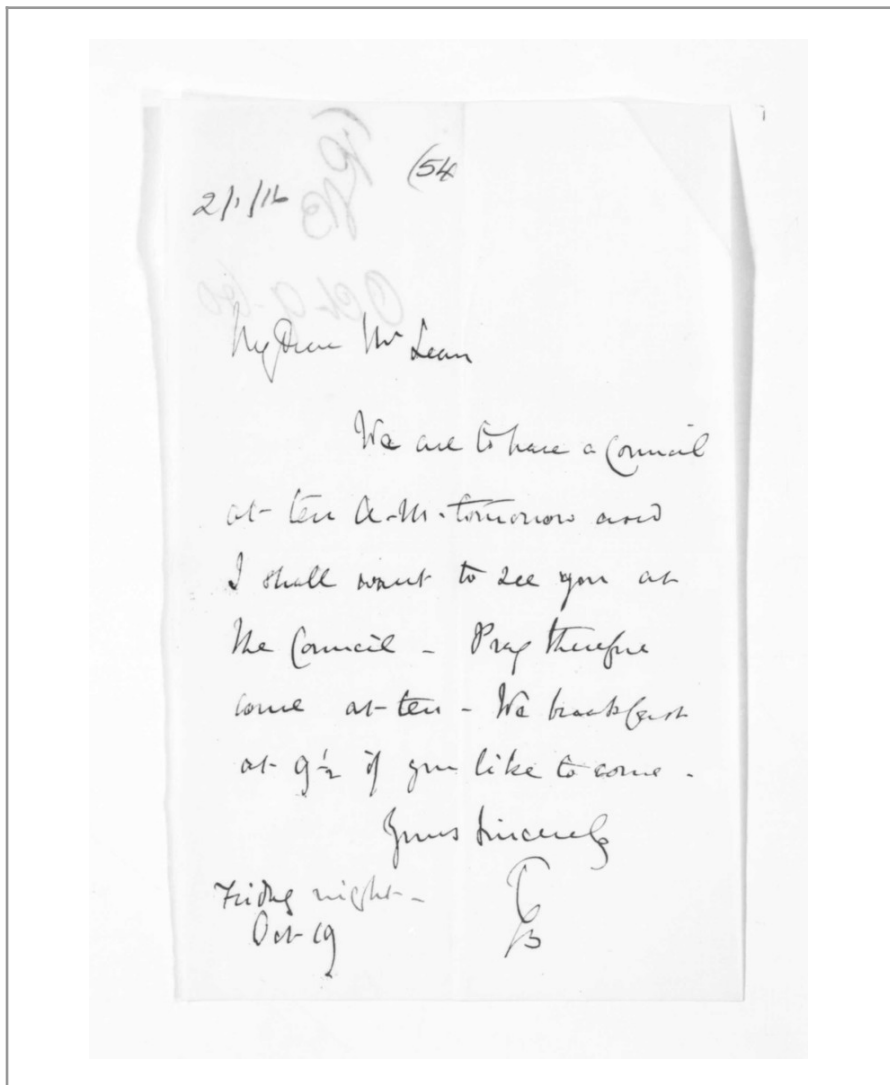 2/1/16
(54
My Dear Mr Lean
We are to have a Council
at ten A.M. tomorrow and
I shall want to see you at
the Council - Pray therefore
come at ten - We breakfast
at 9½ if you like to come -
Yours Sincerely
Friday night -
Oct 19